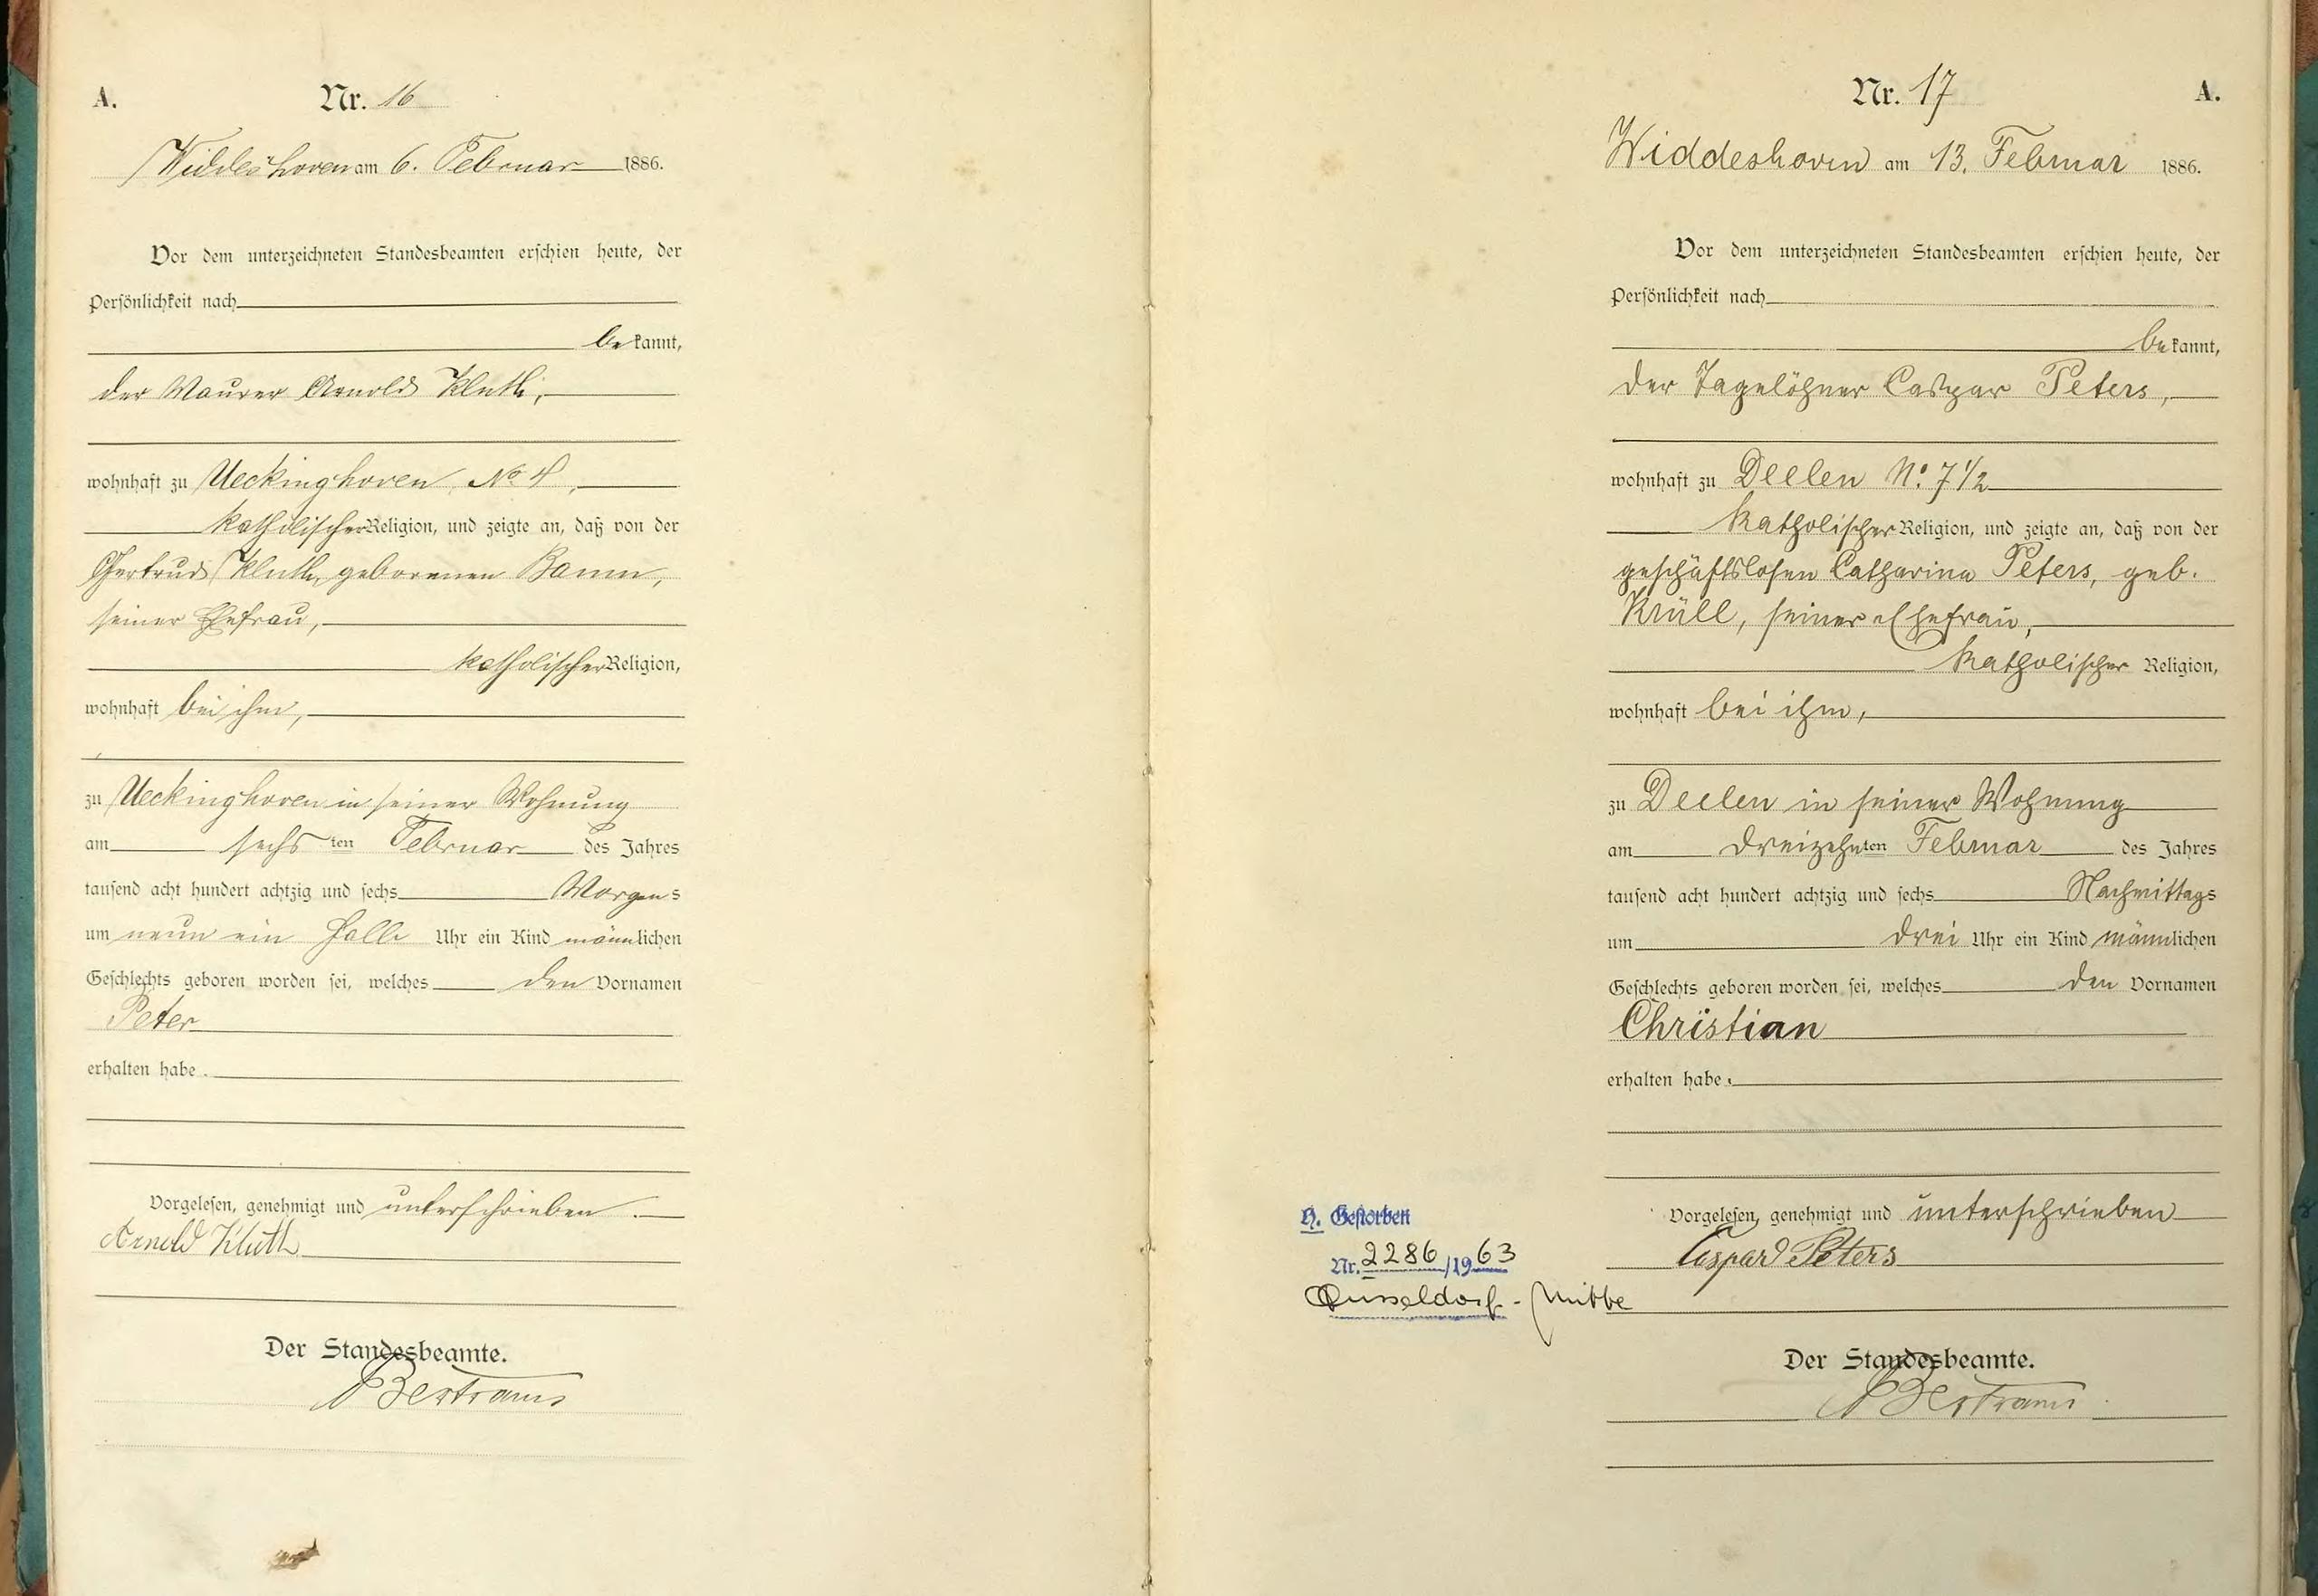 A. Nr. 16
Widdeshoven am 6. Februar 1886.
Vor dem unterzeichneten Standesbeamten erschien heute, der
Persönlichkeit nach
be kannt,
der Maurer Arnold Kluth,
wohnhaft zu Ueckinghoven, No 4,
katholischer Religion, und zeigte an, daß von der
Gertrud Kluth, geborenen Bamm,
seiner Ehefrau,
katholischer Religion,
wohnhaft bei ihm,
zu Ueckinghoven in seiner Wohnung
am sechsten Februar des Jahres
tausend acht hundert achtzig und sechs Morgens
um neun ein halb Uhr ein Kind männlichen
Geschlechts geboren worden sei, welches den Vornamen
Peter
erhalten habe.
Vorgelesen, genehmigt und unterschrieben.
Arnold Kluth
Der Standesbeamte.
Bertrams
Nr. 17 A.
Widdeshoven am 13. Februar 1886.
Vor dem unterzeichneten Standesbeamten erschien heute, der
Persönlichkeit nach
be kannt,
der Tagelöhner Caspar Peters,
wohnhaft zu Deelen No. 7 1/2
katholischer Religion, und zeigte an, daß von der
geschäftslosen Catharina Peters, geb.
Krüll, seiner Ehefrau,
katholischer Religion,
wohnhaft bei ihm,
zu Deelen in seiner Wohnung
am dreizehnten Februar des Jahres
tausend acht hundert achtzig und sechs Nachmittags
um drei Uhr ein Kind männlichen
Geschlechts geboren worden sei, welches den Vornamen
Christian
erhalten habe.
Vorgelesen, genehmigt und unterschrieben
Caspar Peters
Der Standesbeamte.
Bertrams
Gestorben
Nr. 2286/1963
Düsseldorf-Mitte